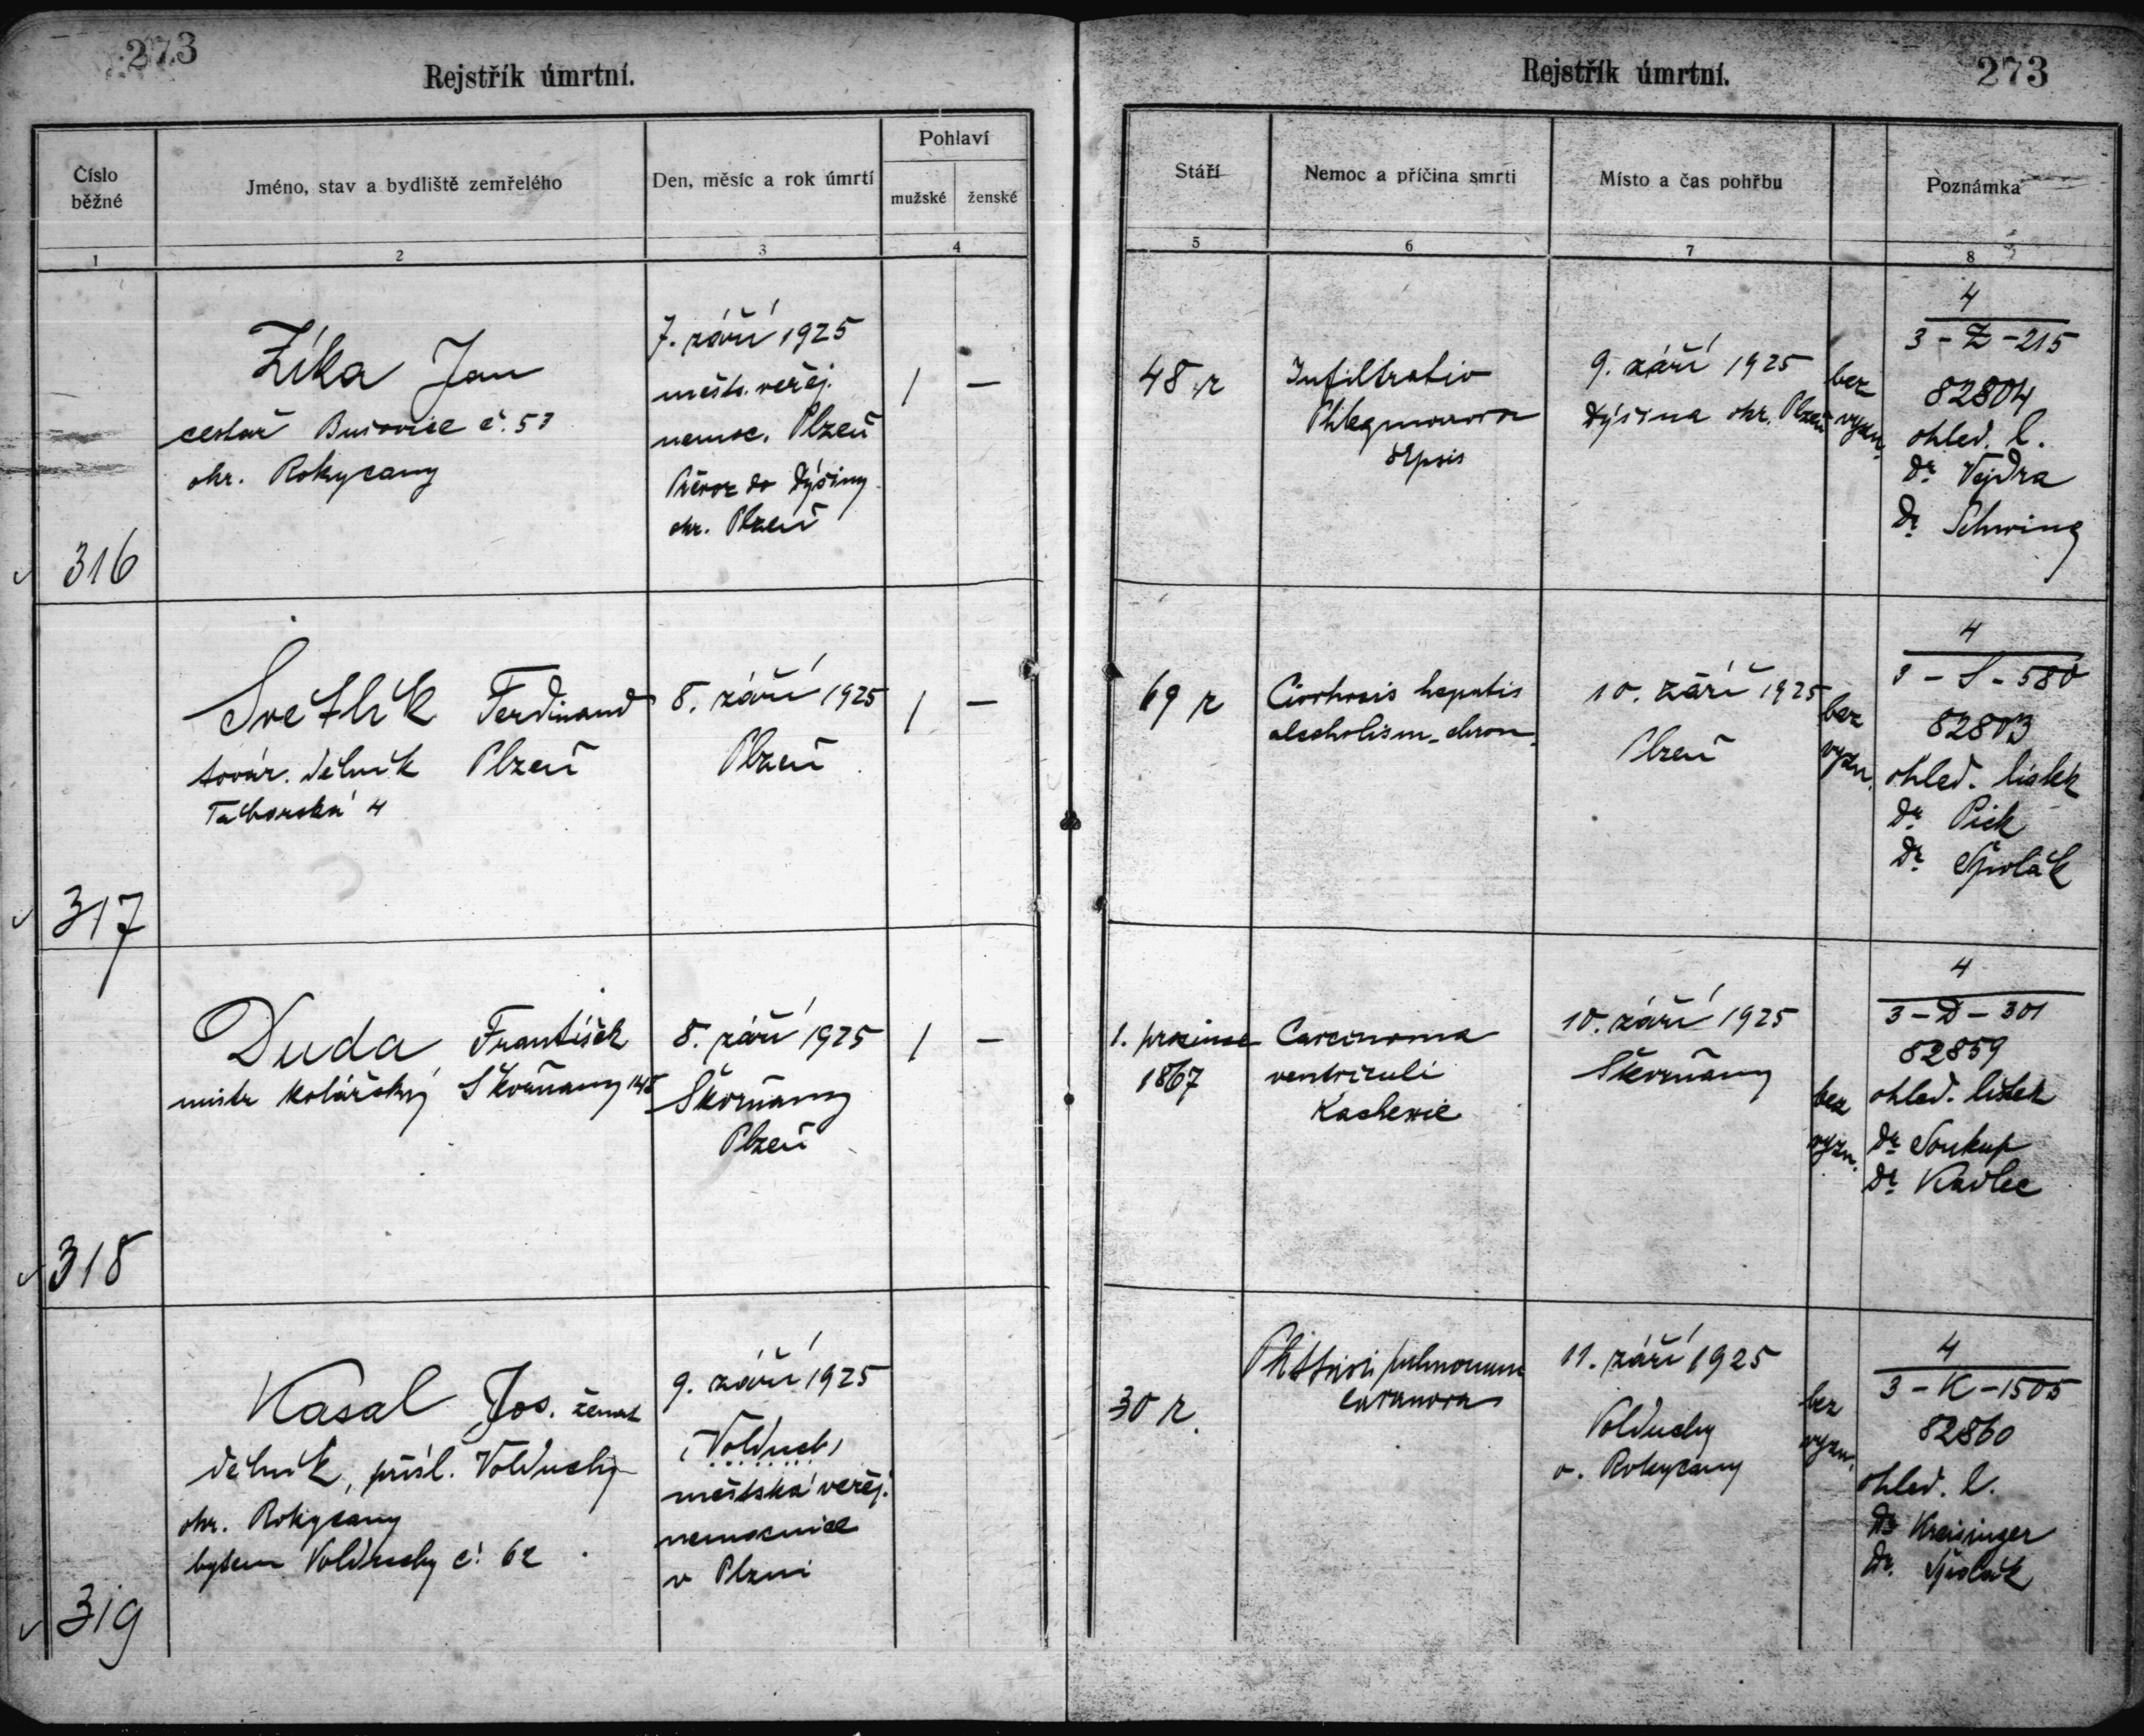 273
Rejstřík úmrtní.
Číslo běžné
Jméno, stav a bydliště zemřelého
Den, měsíc a rok úmrtí
Pohlaví
mužské
ženské
1
2
3
4
Zíka Jan
cestář Bušovice č. 53
okr. Rokycany
7. září 1925
městs. veřej.
nemoc. Plzeň
Převoz do Dýšiny
okr. Plzeň
1
—
316
Světlík Ferdinand
továr. dělník Plzeň
Táborská 4
8. září 1925
Plzeň
1
—
317
Duda František
mistr kolářský Skvrňany 148
8. září 1925
Skvrňany
Plzeň
1
—
318
Kasal Jos. ženat
dělník, přísl. Volduchy
okr. Rokycany
bytem Volduchy č. 62
9. září 1925
(Volduch)
městská veřej.
nemocnice
v Plzni
319
Rejstřík úmrtní.
273
Stáří
Nemoc a příčina smrti
Místo a čas pohřbu
Poznámka
5
6
7
8
48 r
Infiltratio
Phlegmonosa
sepsis
9. září 1925
Dýšina okr. Plzeň
bez
vyzn.
4
3-Z-215
82804
ohled. l.
Dr Vejdra
Dr Schwing
69 r
Cirrhosis hepatis
alcoholism. chron.
10. září 1925
Plzeň
bez
vyzn.
4
3-S-580
82803
ohled. lístek
Dr Pick
Dr
1. prosince
1867
Carcinoma
ventriculi
Kachexie
10. září 1925
Skvrňany
bez
vyzn.
4
3-D-301
82859
ohled. lístek
Dr Soukup
Dr Kadlec
30 r.
pulmonum
cavernosa
11. září 1925
Volduchy
o. Rokycany
bez
vyzn.
4
3-K-1505
82860
ohled. l.
Dr Kreisinger
Dr.